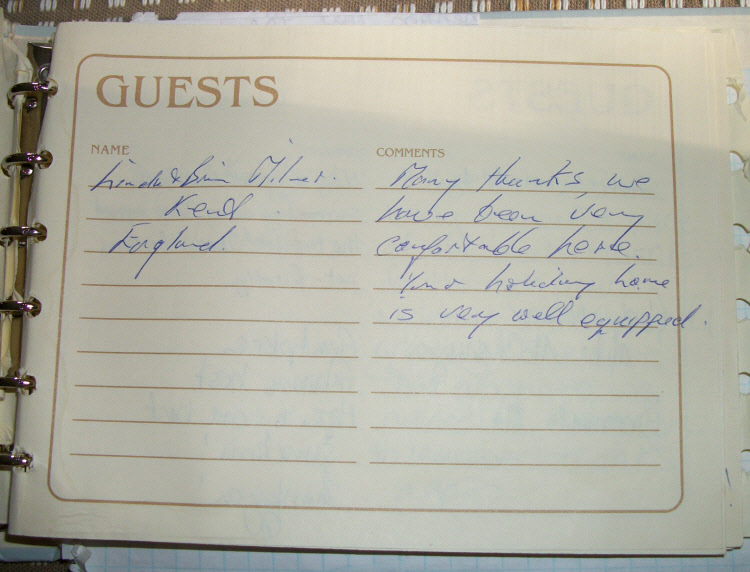 GUESTS
NAME
COMMENTS
Linda & Brian Milner.
Kent.
England.
Many thanks, we
have been very
comfortable here.
Your holiday home
is very well equipped.